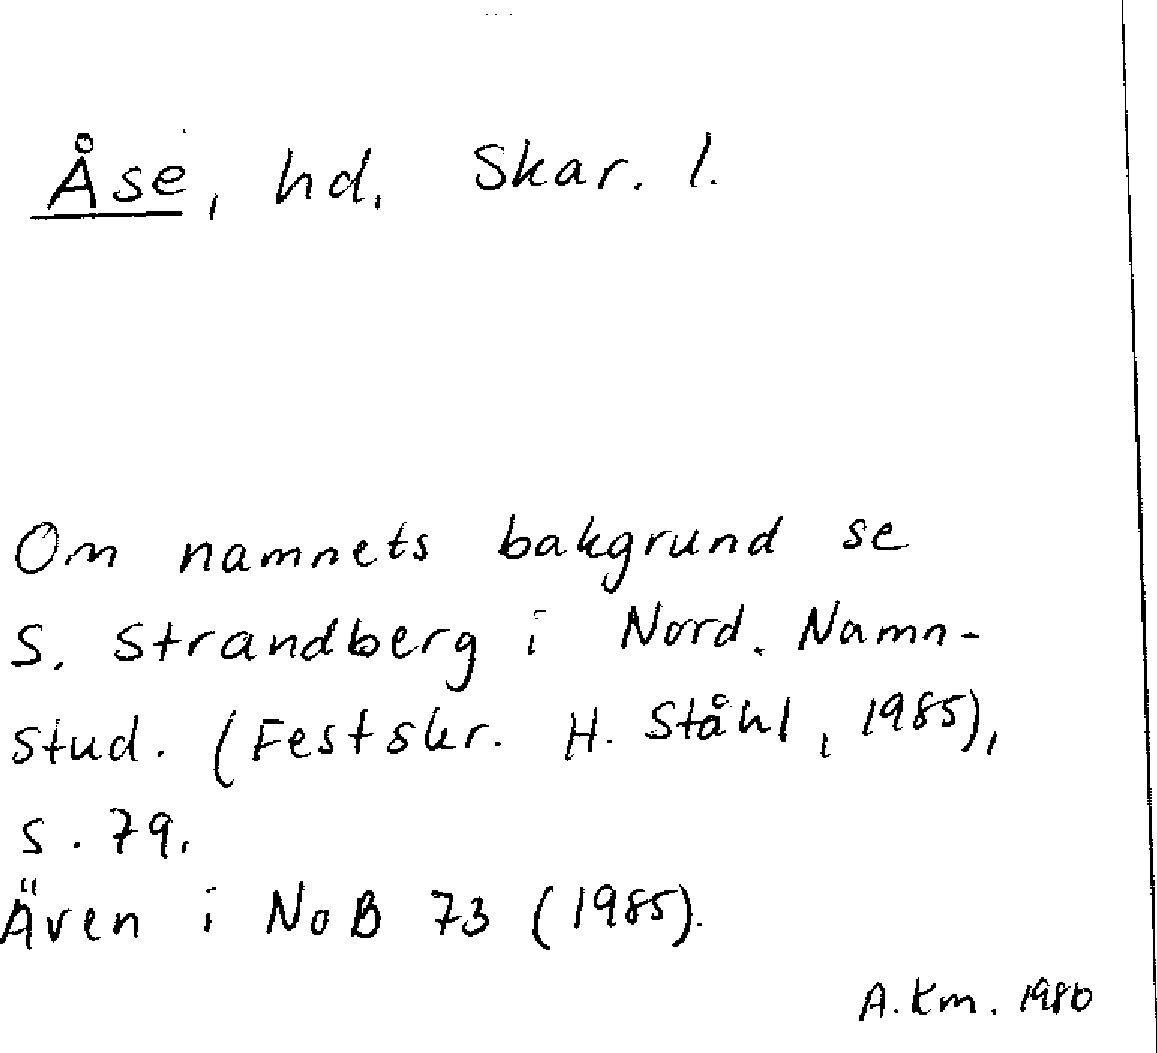 Åse, hd. Skar. l.
Om namnets bakgrund se
S. Strandberg i Nord. Namn-
stud. (Festskr. H. Ståhl, 1985),
s. 79.
Även i NoB 73 (1985).
A. Km. 1986